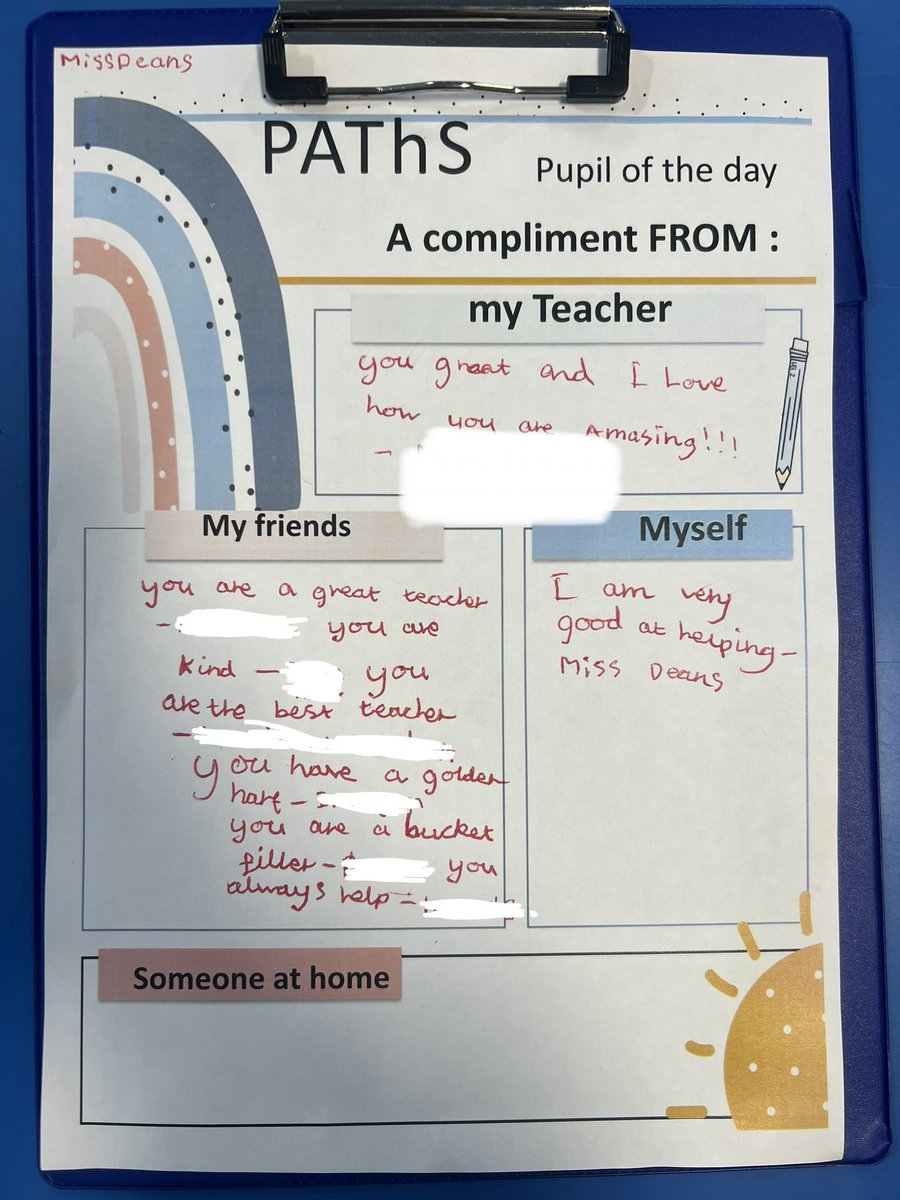 MissDeans
PAThS
Pupil of the day
A compliment FROM :
my Teacher
you great and I Love
how you are Amasing!!!
-
My friends
you are a great teacher
- you are
Kind - you
are the best teacher
-
You have a golden
hart -
you are a bucket
filler - you
always help -
Myself
I am very
good at helping -
Miss Deans
Someone at home